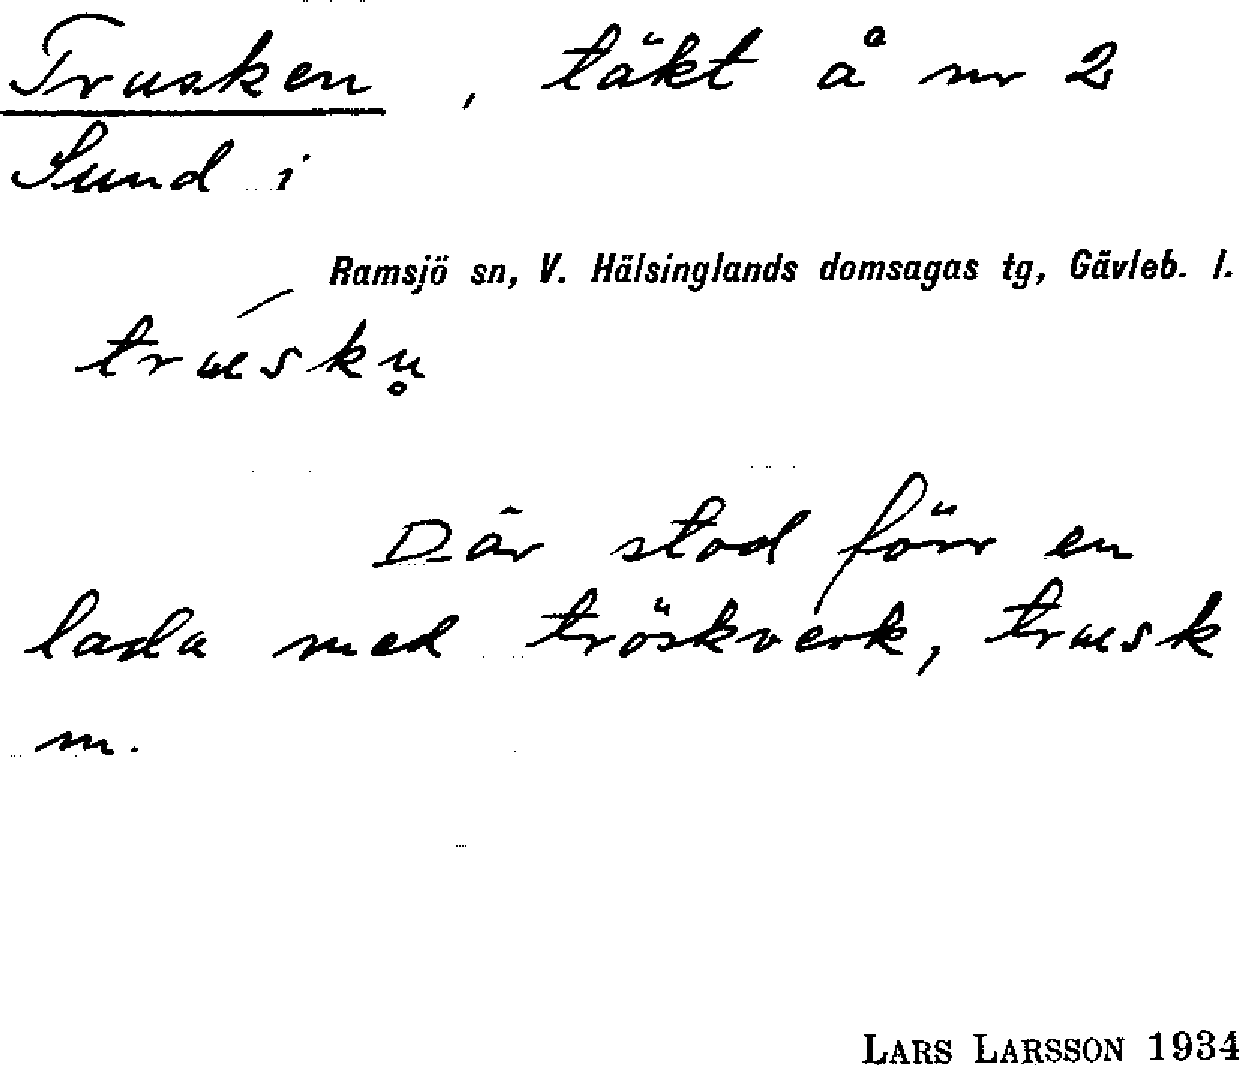 Trusken, täkt å nr 2
Sund i
Ramsjö sn, V. Hälsinglands domsagas tg, Gävleb. l.
Där stod förr en
lada med tröskverk,
m.
LARS LARSSON 1934